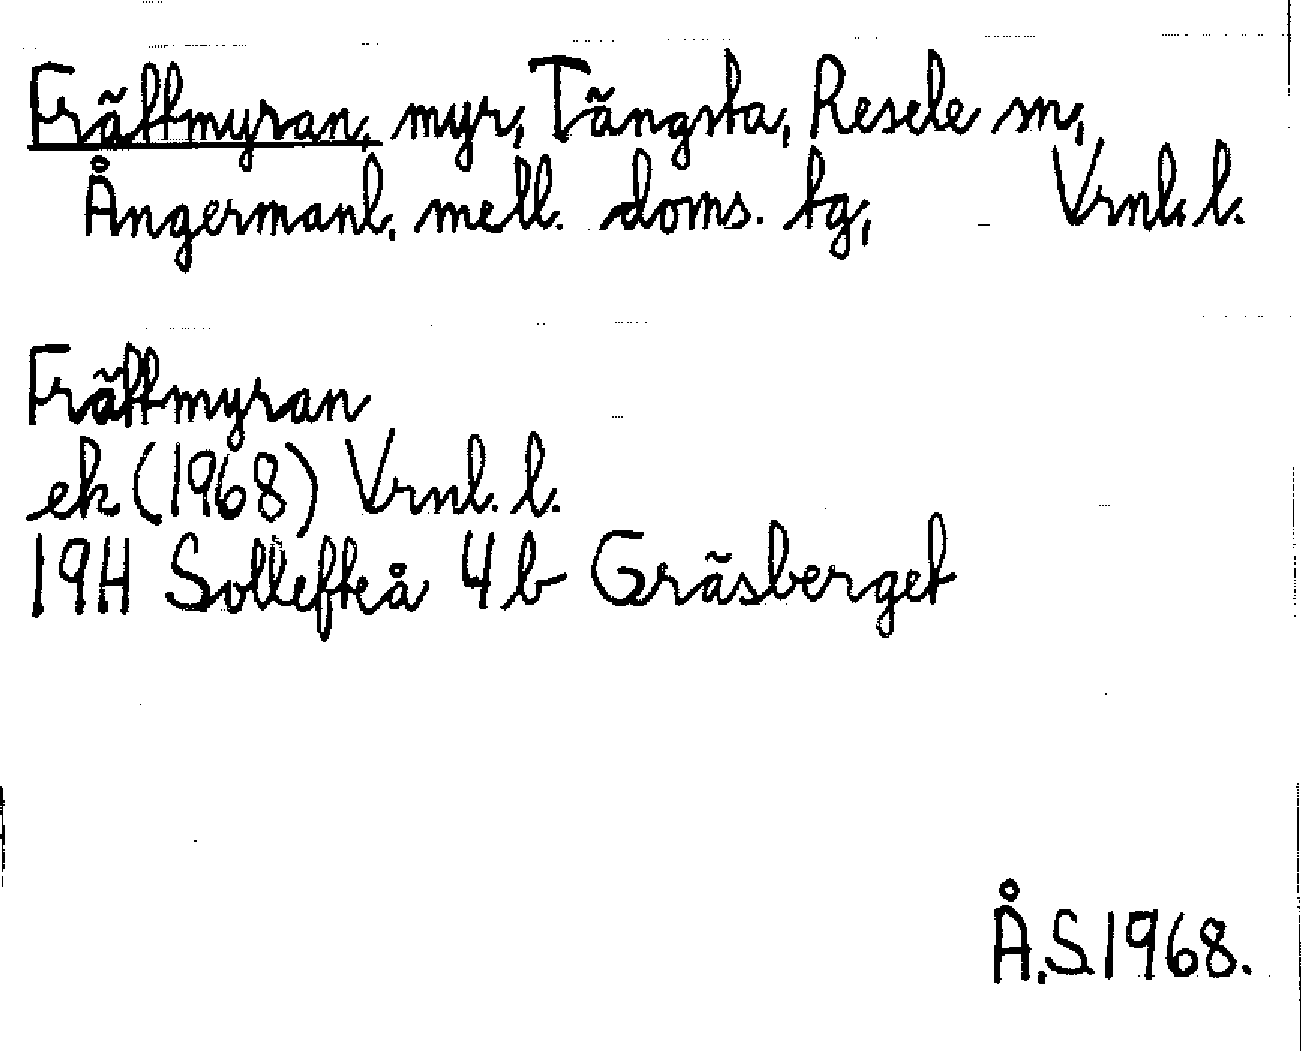 Frättmyran, myr, Tängsta, Resele sn,
Ångermanl. mell. doms. tg, Vrnl. l.
Frättmyran
ek (1968) Vrnl. l.
19H Sollefteå 4b Gräsberget
Å.S 1968.